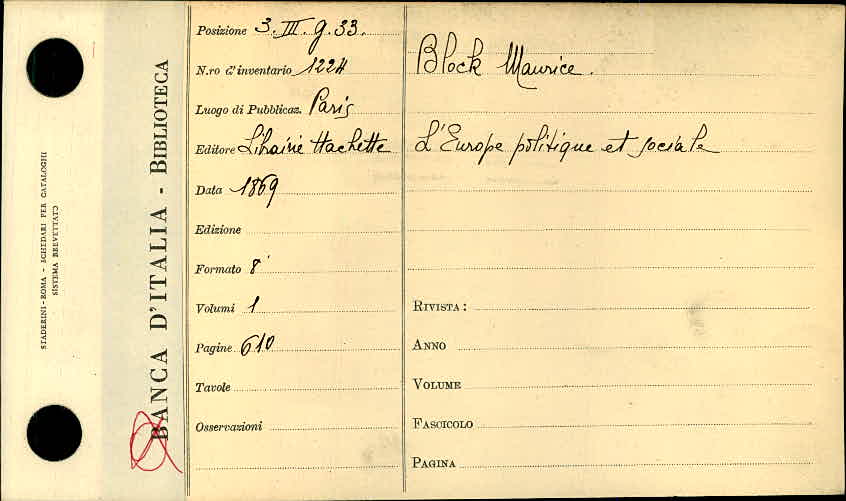 STADERINI - ROMA - SCHEDARI PER CATALOGHI
SISTEMA BREVETTATO
BANCA D'ITALIA - BIBLIOTECA
Posizione 3. III. g. 33.
N.ro d'inventario 1224
Luogo di Pubblicaz. Paris
Editore Librairie Hachette
Data 1869
Edizione
Formato 8°
Volumi 1
Pagine 610
Tavole
Osservazioni
Block Maurice.
L'Europe politique et sociale
RIVISTA:
ANNO
VOLUME
FASCICOLO
PAGINA